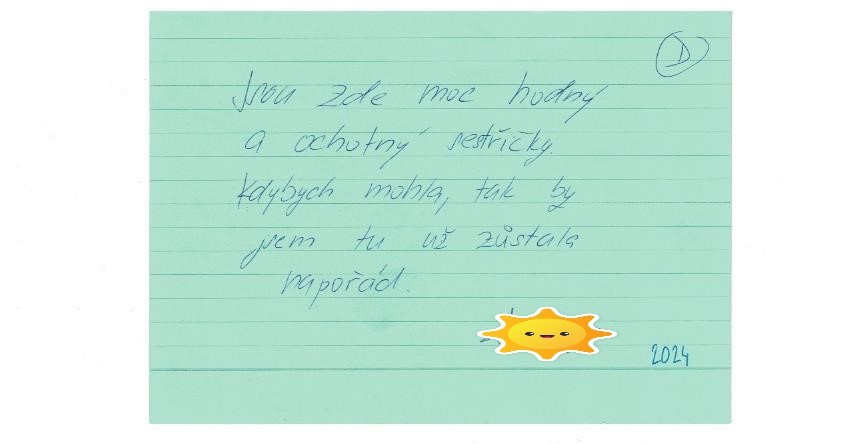 D
Jsou zde moc hodný
a ochotný sestřičky.
Kdybych mohla, tak by
jsem tu už zůstala
napořád.
2024